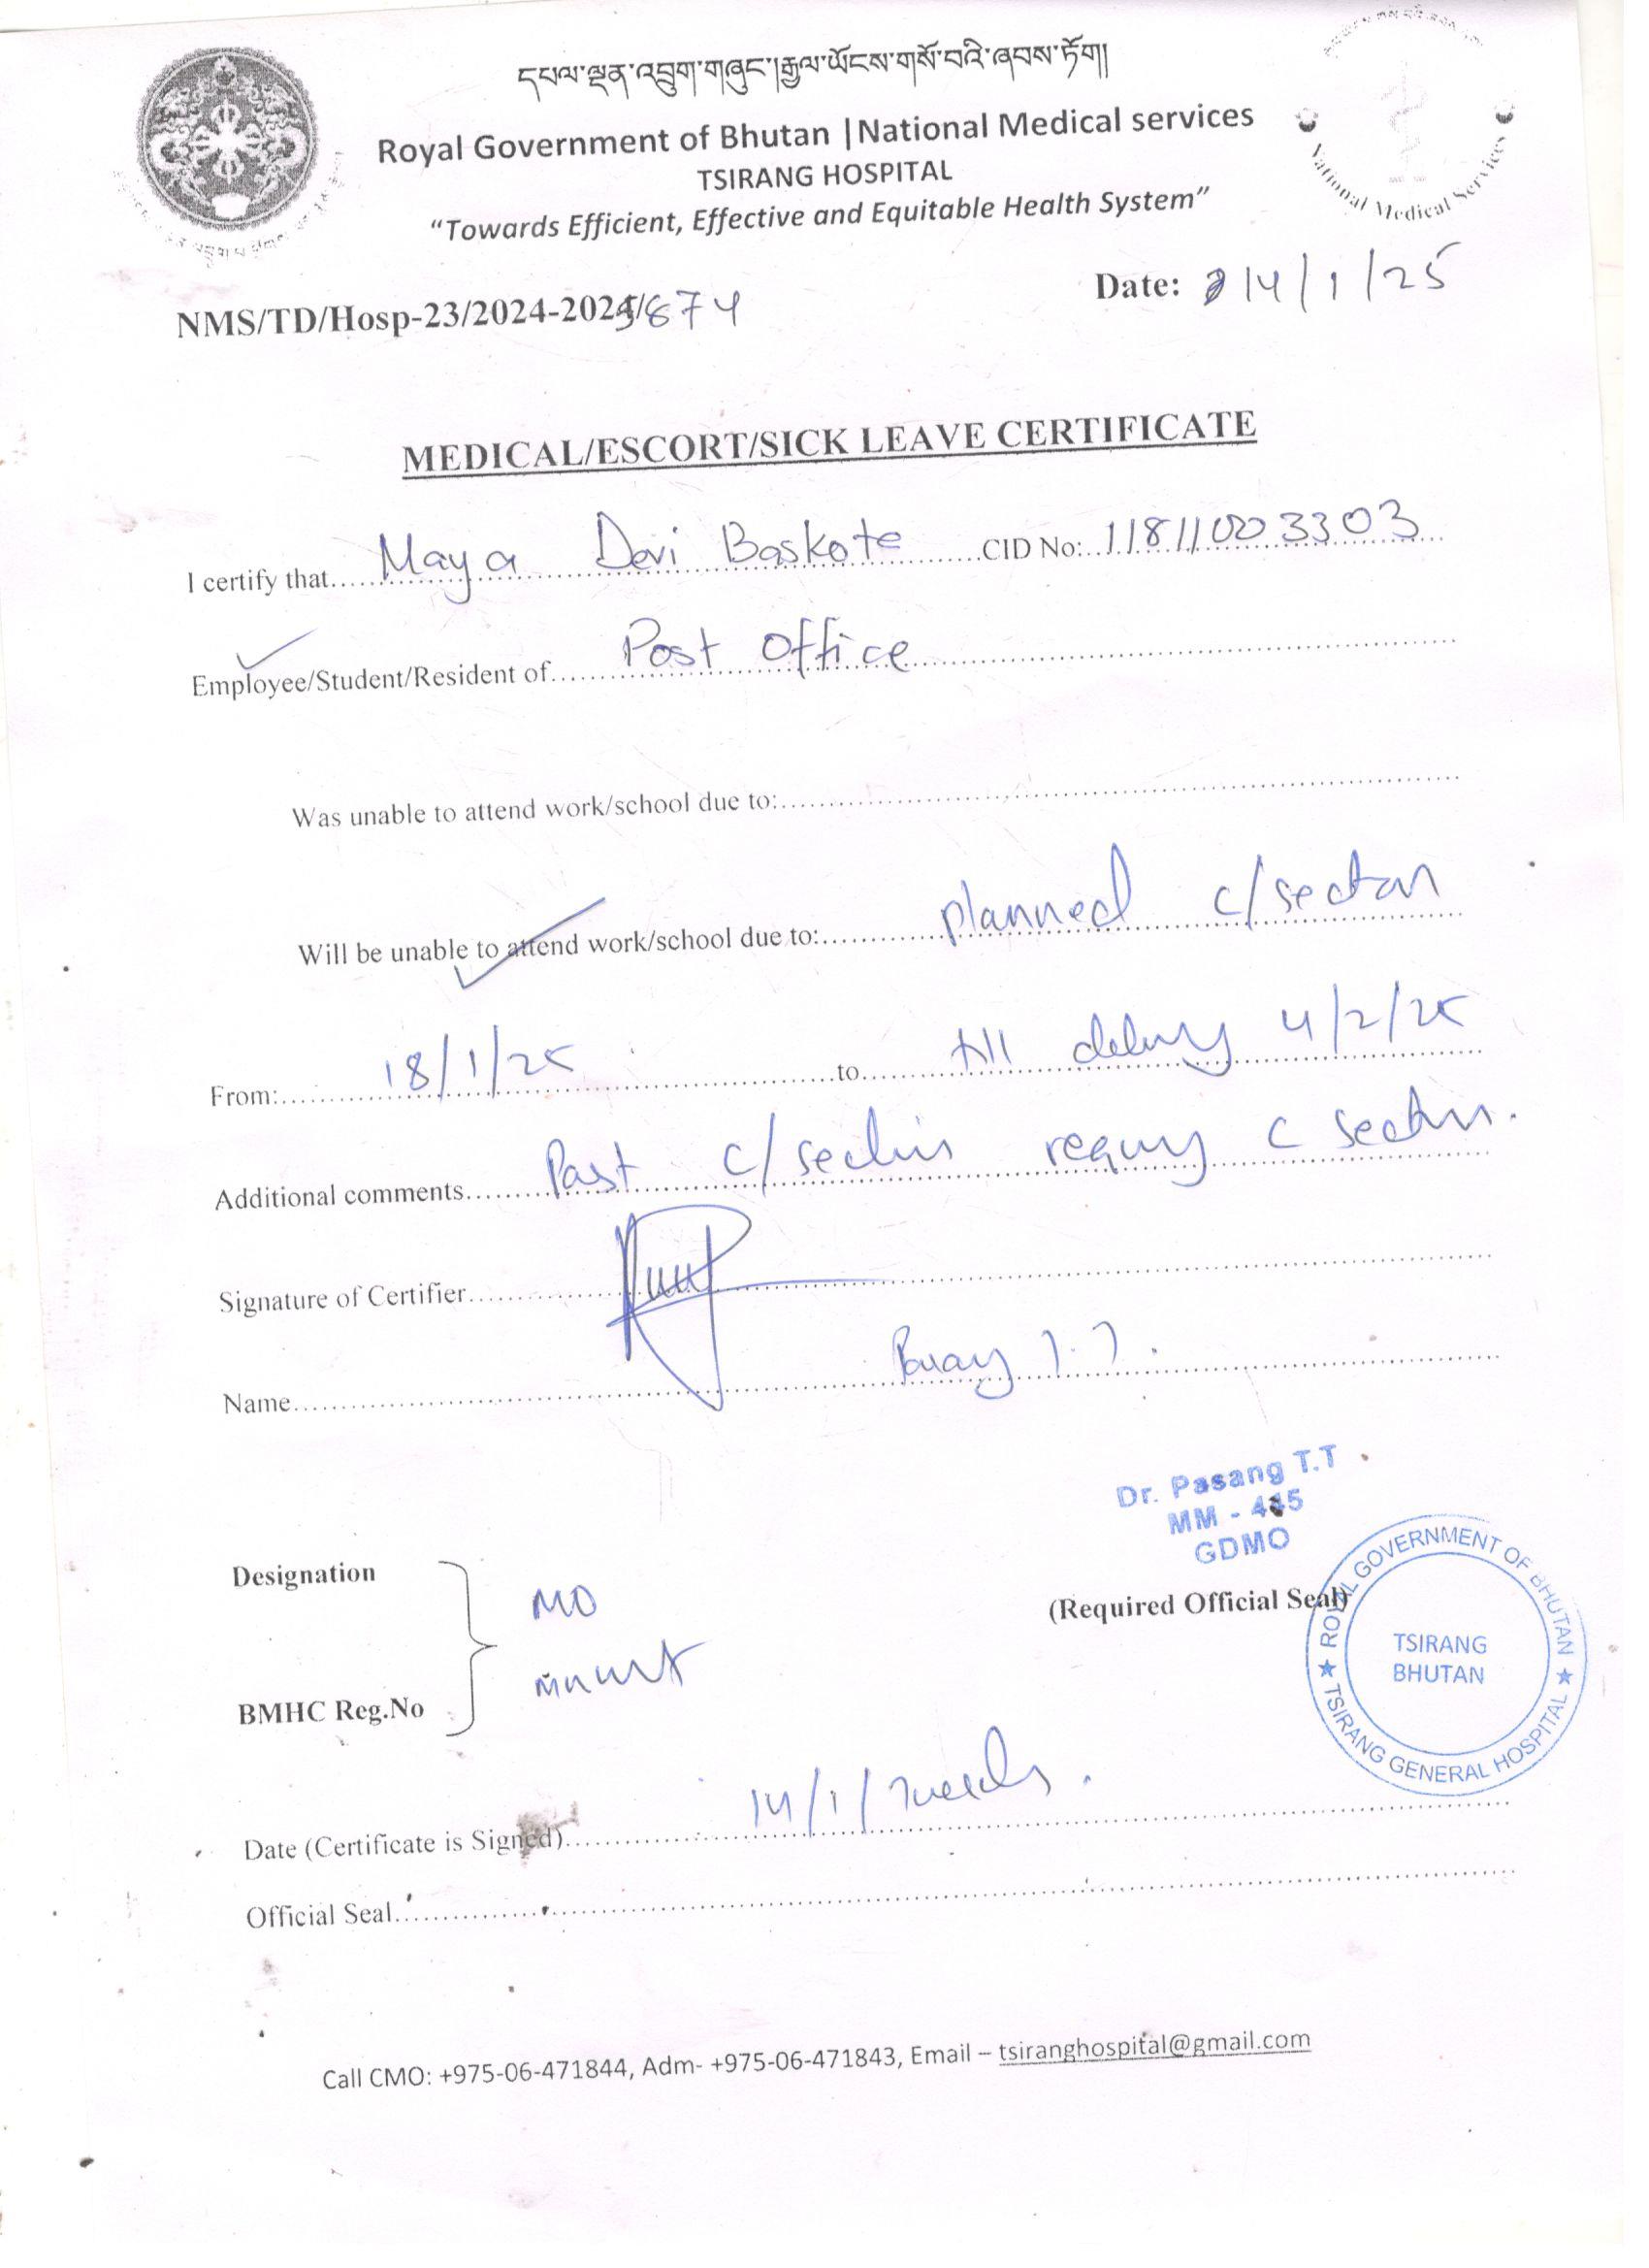 དཔལ་ལྡན་འབྲུག་གཞུང་།རྒྱལ་ཡོངས་གསོ་བའི་ཞབས་ཏོག།
Royal Government of Bhutan |National Medical services
TSIRANG HOSPITAL
“Towards Efficient, Effective and Equitable Health System”
National Medical Services
Date: 14/1/25
NMS/TD/Hosp-23/2024-2025/874
MEDICAL/ESCORT/SICK LEAVE CERTIFICATE
I certify that Maya Devi Baskote CID No: 11811003303
Employee/Student/Resident of Post Office
Was unable to attend work/school due to:
Will be unable to attend work/school due to: planned c/section
From: 18/1/25 to till delivery 4/2/25
Additional comments Past c/section c section.
Signature of Certifier
Name Pasang T.T.
Dr. Pasang T.T
MM - 445
GDMO
Designation MO
(Required Official Seal)
BMHC Reg.No
ROYAL GOVERNMENT OF BHUTAN
TSIRANG GENERAL HOSPITAL
TSIRANG
BHUTAN
Date (Certificate is Signed) 14/1/
Official Seal
Call CMO: +975-06-471844, Adm- +975-06-471843, Email – tsiranghospital@gmail.com